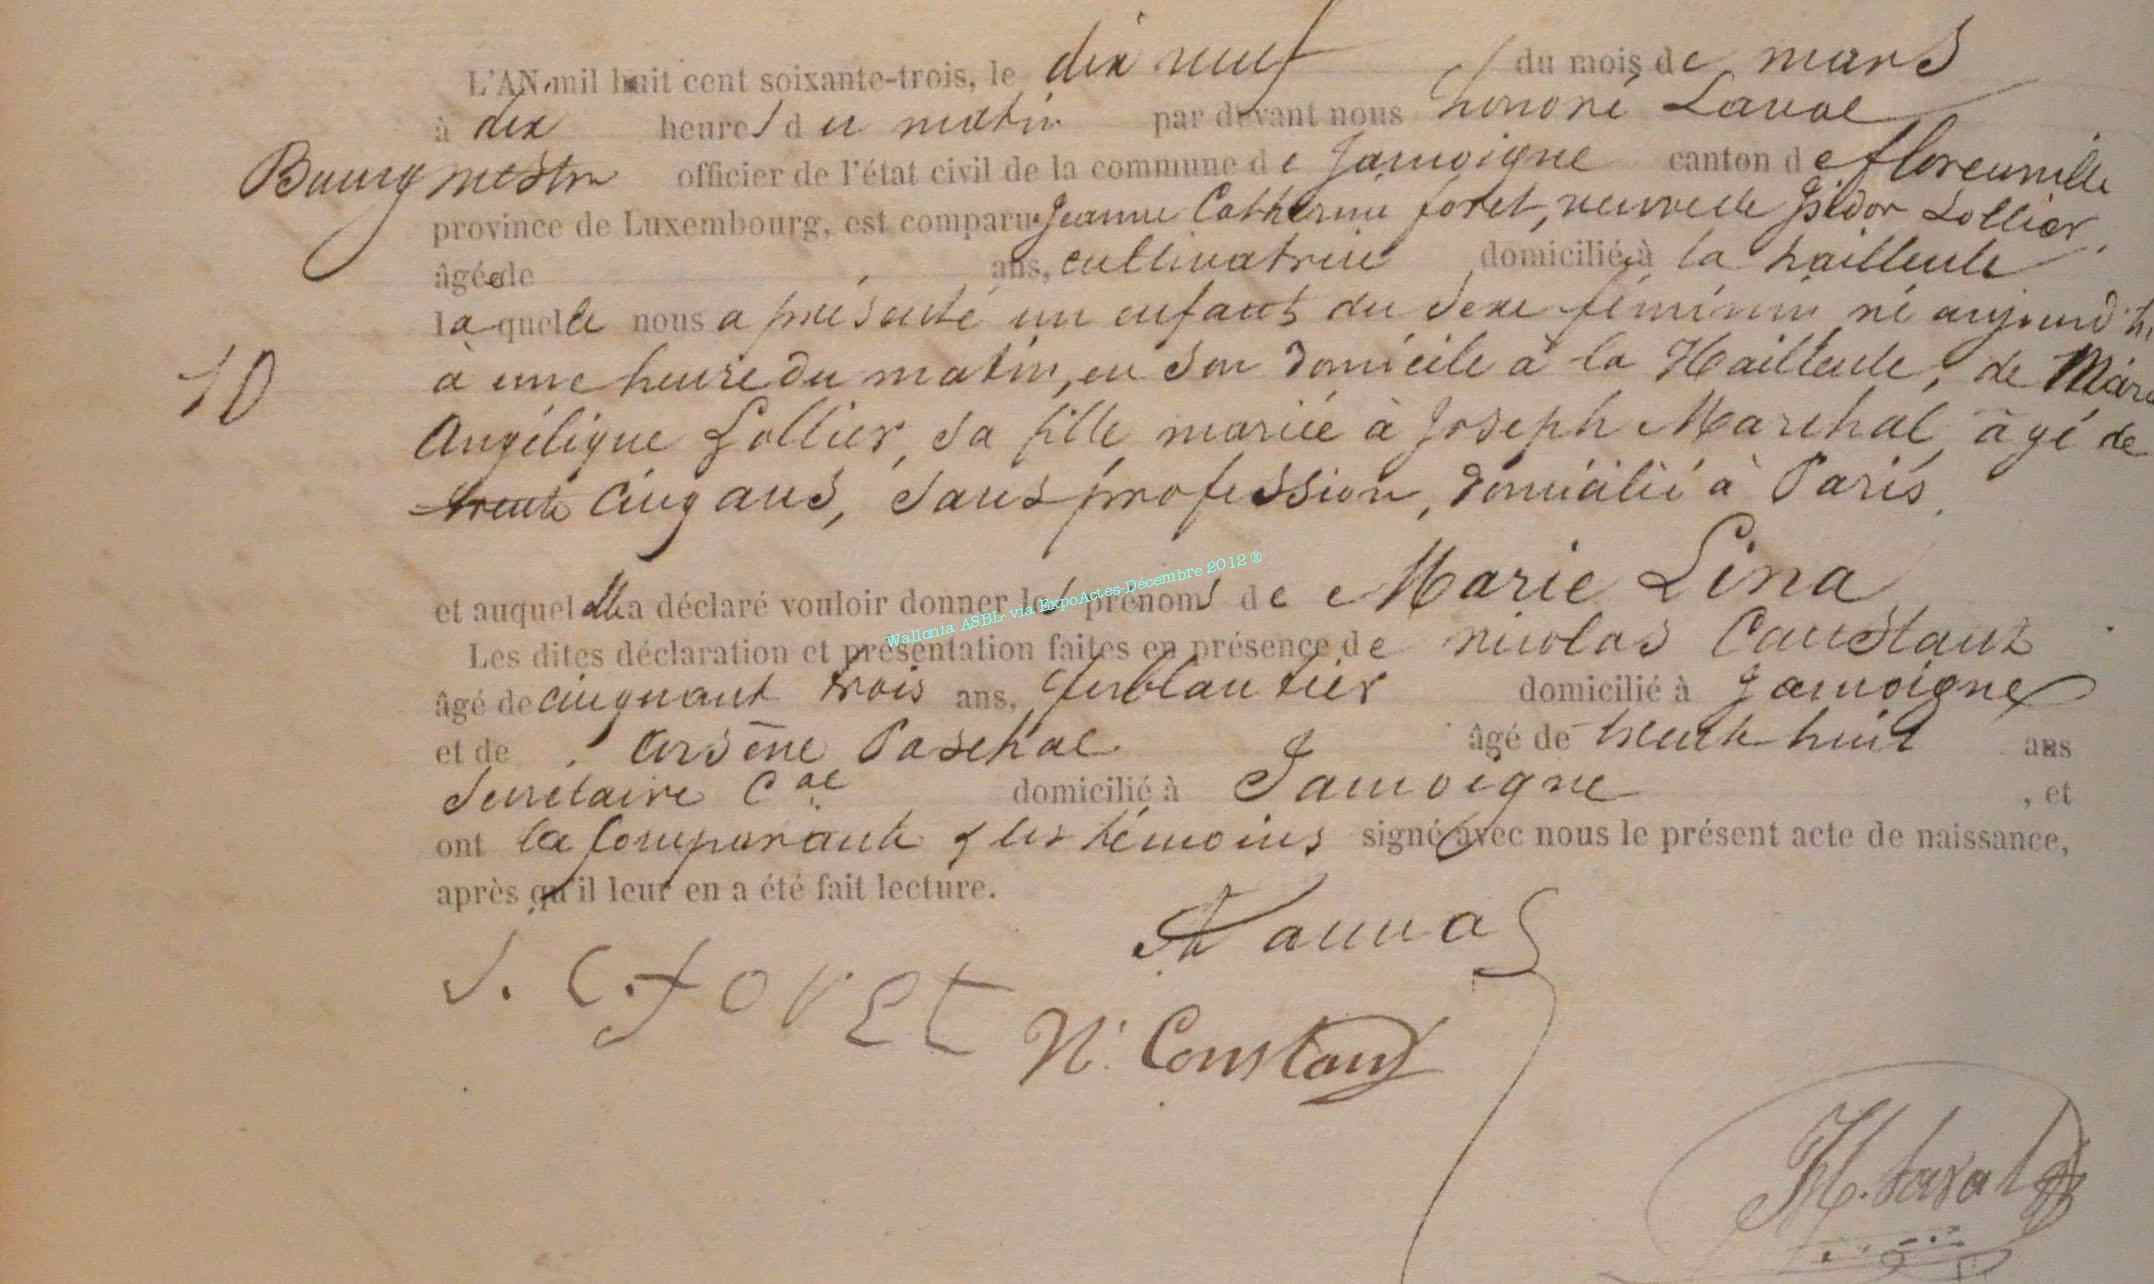 L'AN mil huit cent soixante-trois, le dix neuf du mois de mars
à dix heures du matin par devant nous honoré Laval
Bourgmestre officier de l'état civil de la commune de Jamoigne canton de florenville
province de Luxembourg, est comparue Jeanne Catherine foret, veuve de Isidor Lollier,
âgée de ans, cultivatrice domiciliée à la hailleule
laquelle nous a présenté un enfant du sexe féminin né aujourd'hui
à une heure du matin, en son domicile à la Hailleule, de Marie
Angélique Lollier, sa fille, mariée à Joseph Marchal, âgé de
10
trente cinq ans, sans profession, domicilié à Paris,
et auquel elle a déclaré vouloir donner les prénoms de Marie Lina
Wallonia ASBL via ExpoActes Décembre 2012 ®
Les dites déclaration et présentation faites en présence de nicolas Constant
âgé de cinquante trois ans, ferblantier domicilié à Jamoigne
et de Arsène Paschal âgé de trente huit ans
Secrétaire Cal domicilié à Jamoigne , et
ont la Comparante & les témoins signé avec nous le présent acte de naissance,
après qu'il leur en a été fait lecture.
J. C. foret
N. Constant
H. Laval